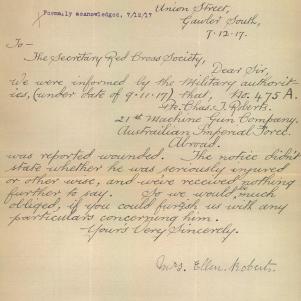 Union Street,
Formally acknowledged, 7/12/17
Gawler South,
7.12.17.
To-
The Secretary Red Cross Society,
Dear Sir,
We were informed by the Military authorit-
ies, (under date of 9.11.17) that, No. 475A.
Pte. Chas. J. Roberts.
21st Machine Gun Company.
Austrailian Imperial Force.
Abroad.
was reported wounded. The notice didn't
state whether he was seriously injured
or other wise, and we've received nothing
further to say. So we would be much
obliged, if you could furnish us with any
particulars concerning him.
Yours Very Sincerely.
Mrs. Ellen Roberts.